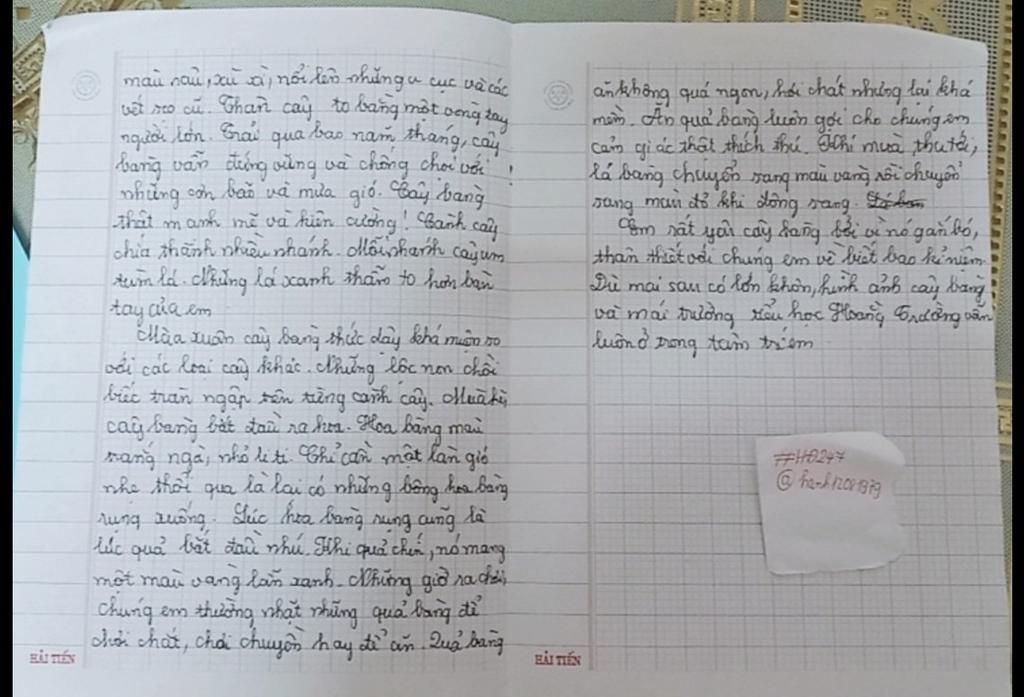 màu nâu, xù xì, nổi lên những u cục và các
vết sẹo cũ. Thân cây to bằng một vòng tay
người lớn. Trải qua bao năm tháng, cây
bàng vẫn đứng vững và chống chọi với
những cơn bão và mưa gió. Cây bàng
thật mạnh mẽ và kiên cường! Cành cây
chia thành nhiều nhánh. Mỗi nhánh cây um
tùm lá. Những lá xanh thẫm to hơn bàn
tay của em
Mùa xuân cây bàng thức dậy khá muộn so
với các loại cây khác. Những lộc non chồi
biếc tràn ngập trên từng cành cây. Mùa hè,
cây bàng bắt đầu ra hoa. Hoa bàng màu
trắng ngà, nhỏ li ti. Chỉ cần một làn gió
nhẹ thổi qua là lại có những bông hoa bàng
rụng xuống. Lúc hoa bàng rụng cũng là
lúc quả bắt đầu nhú. Khi quả chín, nó mang
một màu vàng lẫn xanh. Những giờ ra chơi,
chúng em thường nhặt những quả bàng để
chơi chắt, chơi chuyền hay để ăn. Quả bàng
HẢI TIẾN
ăn không quá ngon, hơi chát nhưng lại khá
mềm. Ăn quả bàng luôn gợi cho chúng em
cảm giác thật thích thú. Khi mùa thu tới,
lá bàng chuyển sang màu vàng rồi chuyển
sang màu đỏ khi đông sang.
Em rất yêu cây bàng bởi vì nó gắn bó,
thân thiết với chúng em về biết bao kỉ niệm.
Dù mai sau có lớn khôn, hình ảnh cây bàng
và mái trường tiểu học Hoàng vẫn
luôn ở trong tâm trí em.
#HĐ247
HẢI TIẾN